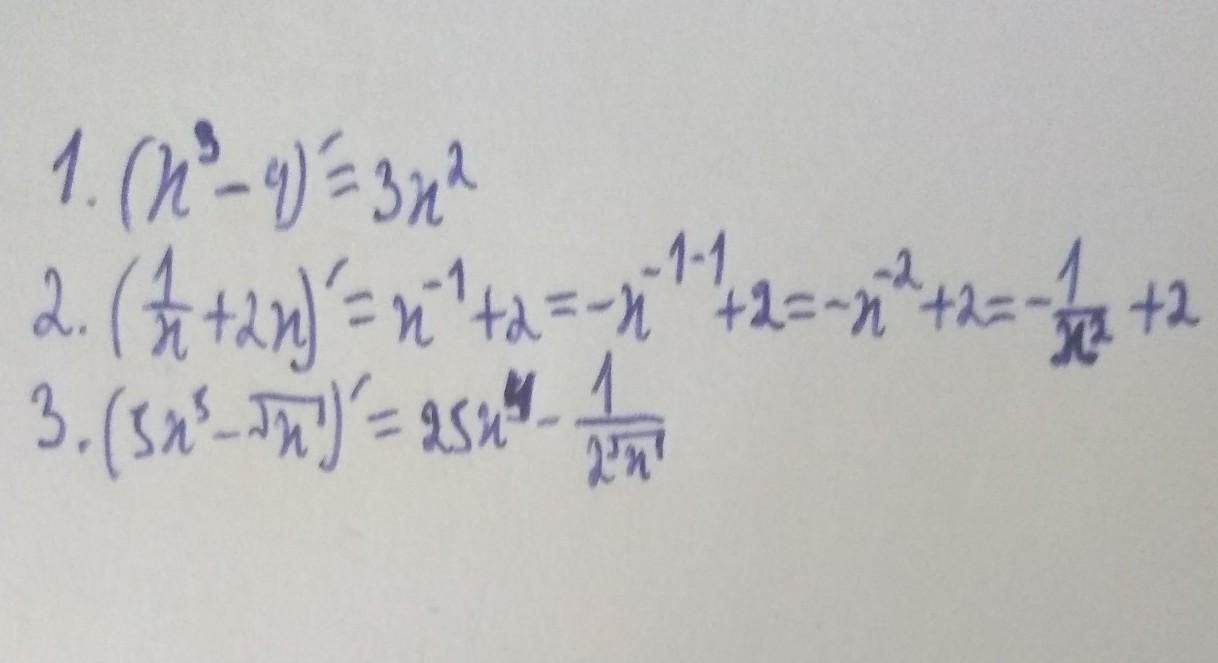 1. (x³ - 4)′ = 3x²
2. (1/x + 2x)′ = x⁻¹ + 2 = -x⁻¹⁻¹ + 2 = -x⁻² + 2 = -1/x² + 2
3. (5x⁵ - √x)′ = 25x⁴ - 1/(2√x)